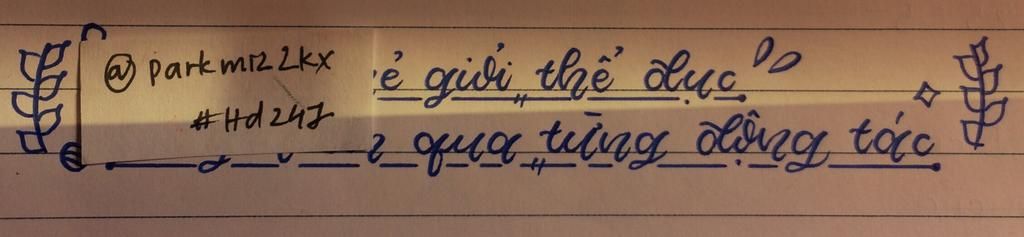 @parkm122kx
#Hd24J
giỏi thể dục
qua từng động tác